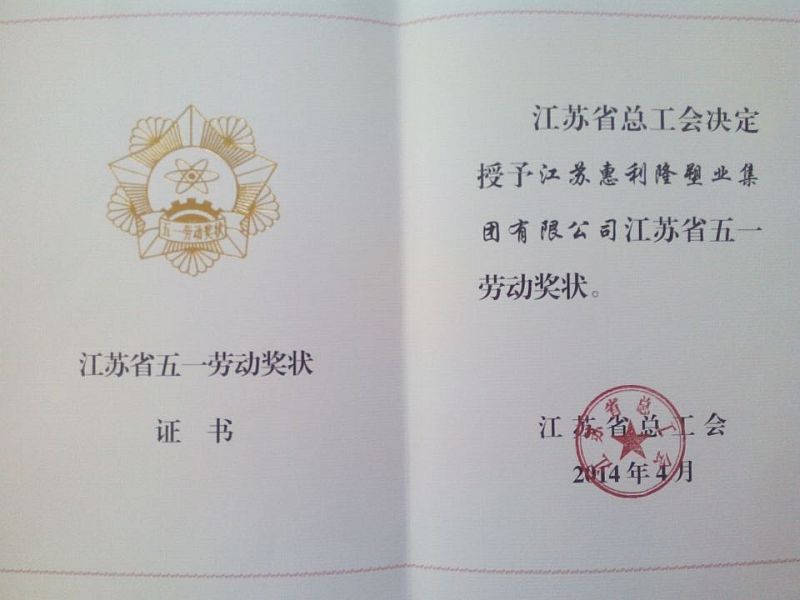 五一劳动奖状
江苏省五一劳动奖状
证书
江苏省总工会决定
授予江苏惠利隆塑业集
团有限公司江苏省五一
劳动奖状。
江苏省总工会
江苏省总工会
2014年4月